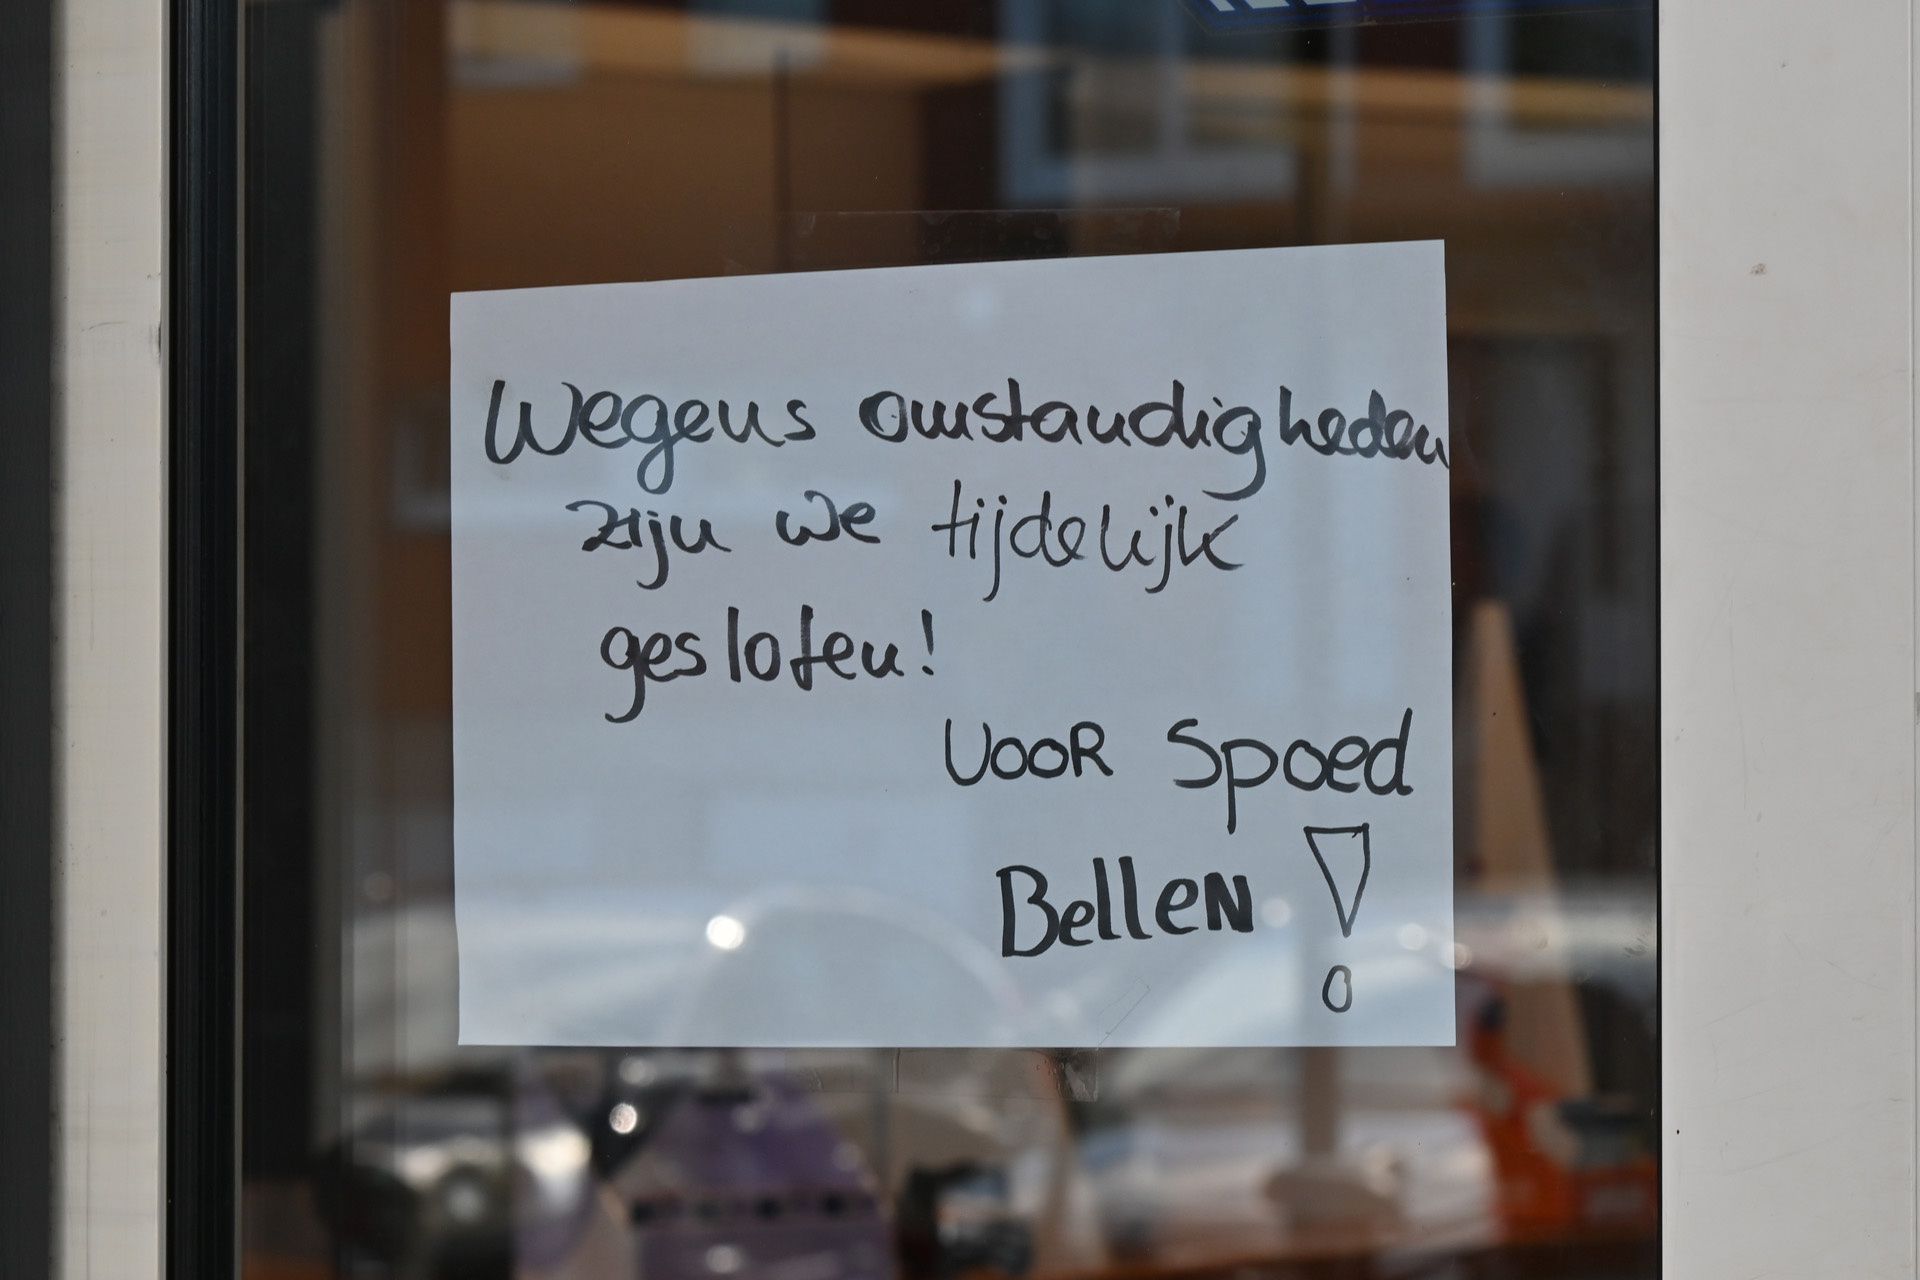 Wegens omstandigheden
zijn we tijdelijk
gesloten!
VOOR Spoed
BelleN !